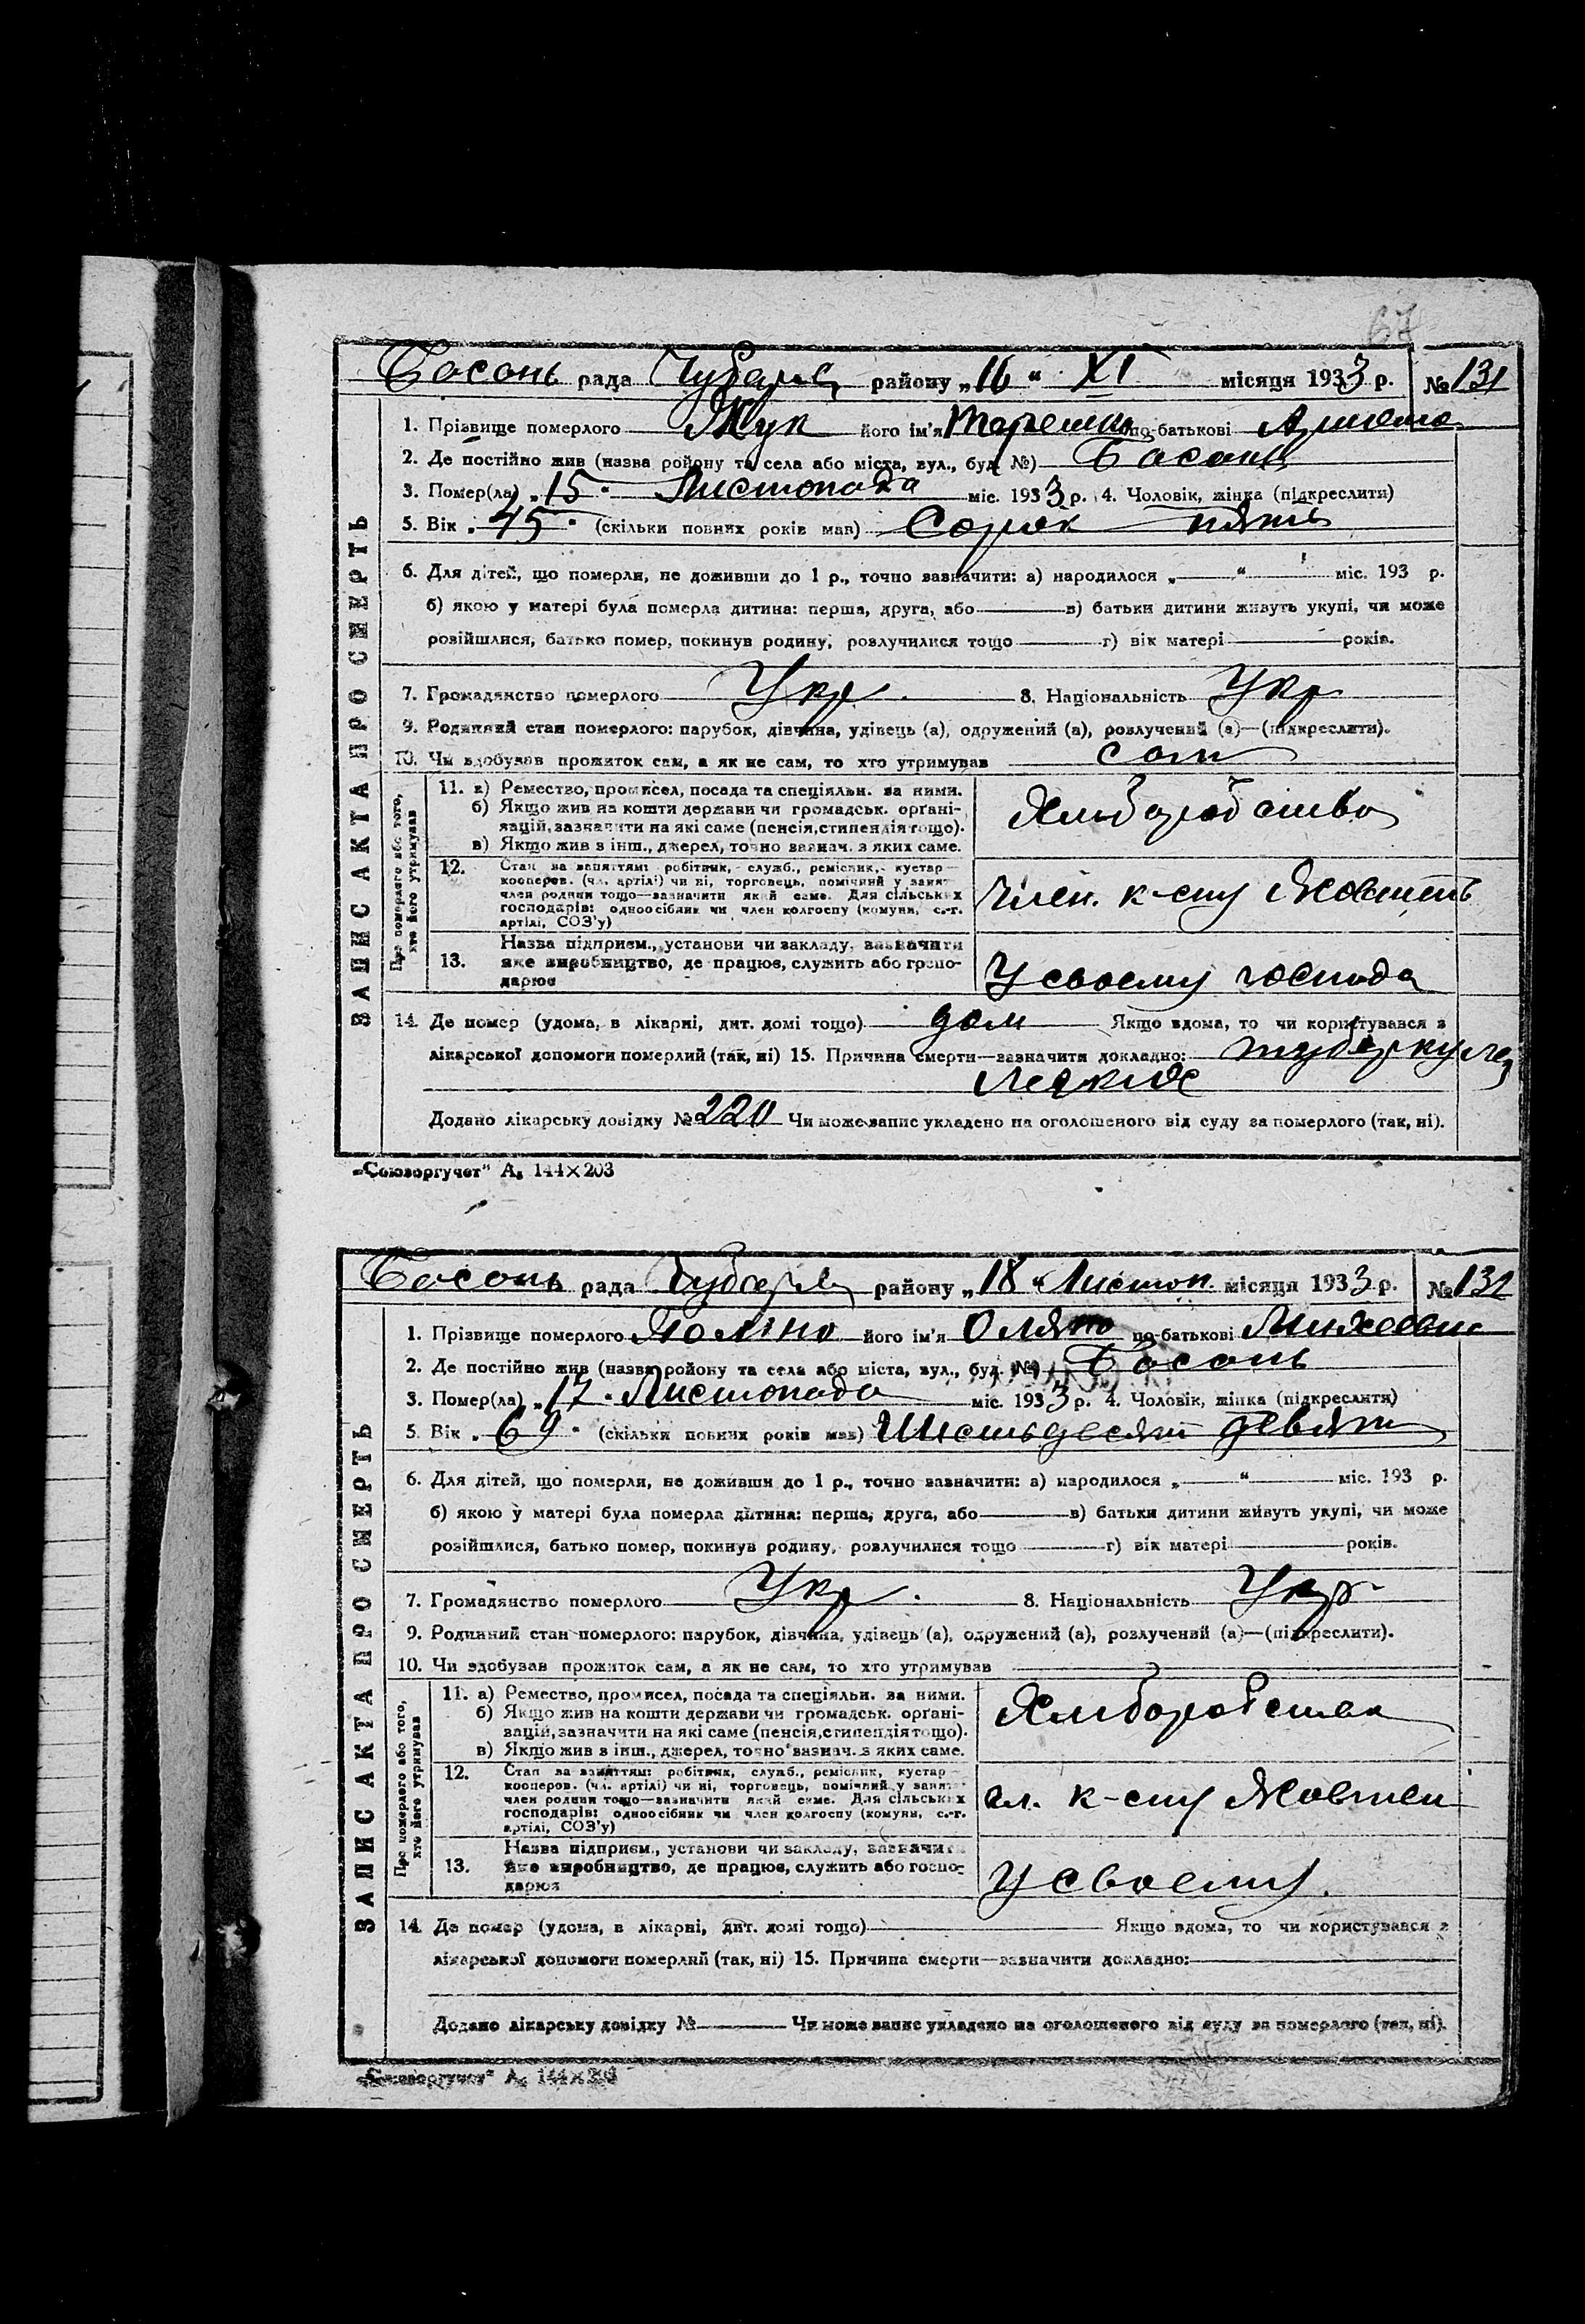 67
Босонь рада Чубарів району „16“ XI місяця 1933 р. № 131
1. Прізвище померлого Жук його ім'я по-батькові
2. Де постійно жив (назва ройону та села або міста, вул., буд. №) Босонь
3. Помер(ла) „15“ Листопада міс. 1933 р. 4. Чоловік, жінка (підкреслити)
5. Вік „45“ (скільки повних років мав) Сорок пять
6. Для дітей, що померли, не доживши до 1 р., точно зазначити: а) народилося „ “ міс. 193 р.
б) якою у матері була померла дитина: перша, друга, або в) батьки дитини живуть укупі, чи може
розійшлися, батько помер, покинув родину, розлучилися тощо г) вік матері років.
7. Громадянство померлого Укр. 8. Національність Укр
9. Родинний стан померлого: парубок, дівчина, удівець (а), одружений (а), розлучений (а)—(підкреслити).
10. Чи здобував прожиток сам, а як не сам, то хто утримував сам
ЗАПИС АКТА ПРО СМЕРТЬ
Про померлого або того, хто його утримував
11. а) Ремество, промисел, посада та спеціяльн. за ними.
б) Якщо жив на кошти держави чи громадськ. орґані-
зацій, зазначити на які саме (пенсія, стипендія тощо).
в) Якщо жив з інш., джерел, точно зазнач. з яких саме.
Хліборобство
12. Стан за заняттям: робітник, служб., ремісник, кустар
кооперов. (чл. артілі) чи ні, торговець, помічний у занят.
член родини тощо—зазначити який саме. Для сільських
господарів: одноосібник чи член колгоспу (комуни, с.-г.
артілі, СОЗ'у)
Член. к-спу Жовтень
13. Назва підприєм., установи чи закладу, зазначити
яке виробництво, де працює, служить або госпо-
дарює
У своєму господа
14. Де помер (удома, в лікарні, дит. домі тощо) дом Якщо вдома, то чи користувався з
лікарської допомоги померлий (так, ні) 15. Причина смерти—зазначити докладно: туберкулез
Легких
Додано лікарську довідку № 220 Чи може запис укладено на оголошеного від суду за померлого (так, ні).
„Союзоргучет“ А₅ 144×203
Босонь рада Чубарів району „18“ Листоп. місяця 1933 р. № 132
1. Прізвище померлого його ім'я по-батькові
2. Де постійно жив (назва ройону та села або міста, вул., буд. №) Босонь
3. Помер(ла) „17“ Листопада міс. 1933 р. 4. Чоловік, жінка (підкреслити)
5. Вік „69“ (скільки повних років мав) Шестьдесят девят
6. Для дітей, що померли, не доживши до 1 р., точно зазначити: а) народилося „ “ міс. 193 р.
б) якою у матері була померла дитина: перша, друга, або в) батьки дитини живуть укупі, чи може
розійшлися, батько помер, покинув родину, розлучилися тощо г) вік матері років.
7. Громадянство померлого Укр. 8. Національність Укр.
9. Родинний стан померлого: парубок, дівчина, удівець (а), одружений (а), розлучений (а)—(підкреслити).
10. Чи здобував прожиток сам, а як не сам, то хто утримував
ЗАПИС АКТА ПРО СМЕРТЬ
Про померлого або того, хто його утримував
11. а) Ремество, промисел, посада та спеціяльн. за ними.
б) Якщо жив на кошти держави чи громадськ. орґані-
зацій, зазначити на які саме (пенсія, стипендія тощо).
в) Якщо жив з інш., джерел, точно зазнач. з яких саме.
Хліборобства
12. Стан за заняттям: робітник, служб., ремісник, кустар
кооперов. (чл. артілі) чи ні, торговець, помічний у занят.
член родини тощо—зазначити який саме. Для сільських
господарів: одноосібник чи член колгоспу (комуни, с.-г.
артілі, СОЗ'у)
чл. к-спу Жовтен
13. Назва підприєм., установи чи закладу, зазначити
яке виробництво, де працює, служить або госпо-
дарює
У своєму.
14. Де помер (удома, в лікарні, дит. домі тощо) Якщо вдома, то чи користувався з
лікарської допомоги померлий (так, ні) 15. Причина смерти—зазначити докладно:
Додано лікарську довідку № Чи може запис укладено на оголошеного від суду за померлого (так, ні).
„Союзоргучет“ А₅ 144×203